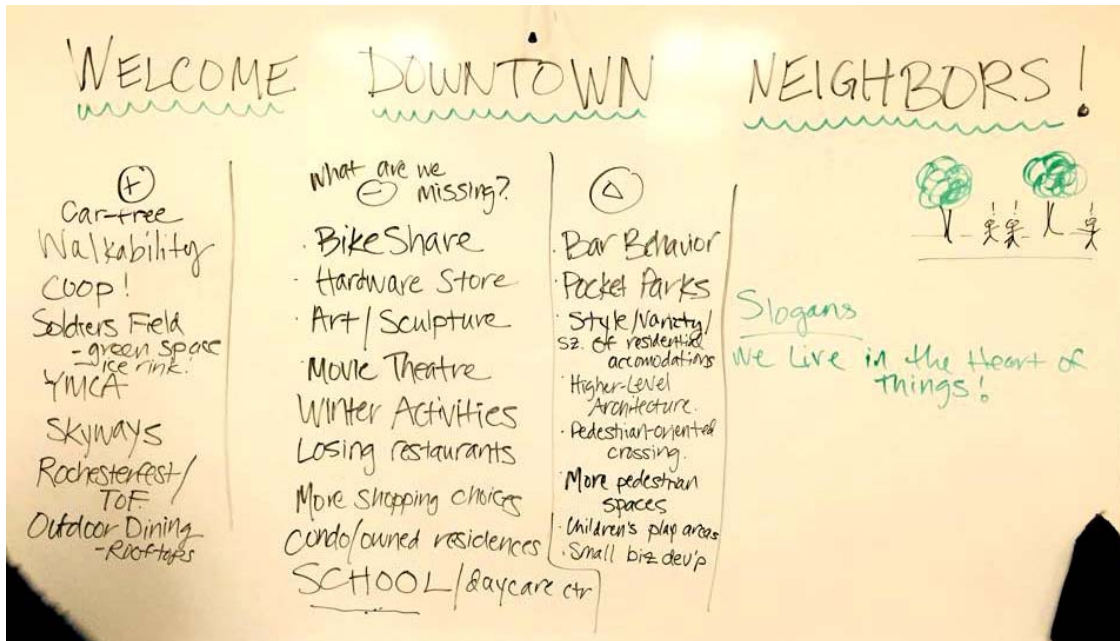 WELCOME DOWNTOWN NEIGHBORS!
+
Car-free
Walkability
COOP!
Soldiers Field
- green space
ice rink.
YMCA
Skyways
Rochesterfest/
TOF.
Outdoor Dining
- Rooftops
What are we
- missing?
· Bike Share
· Hardware Store
· Art/Sculpture
· Movie Theatre
Winter Activities
Losing restaurants
More shopping choices
Condo/owned residences
SCHOOL/daycare ctr
Δ
· Bar Behavior
· Pocket Parks
· Style/Variety/
sz. of residential
accomodations
· Higher-Level
Architecture.
· Pedestrian-oriented
crossing.
· More pedestrian
spaces
· Children's play areas
· Small biz dev'p
Slogans
We Live in the Heart of
Things!